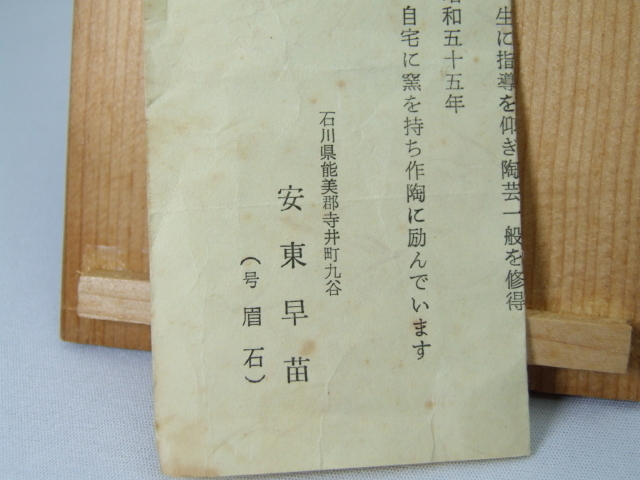 生に指導を仰ぎ陶芸一般を修得
昭和五十五年
自宅に窯を持ち作陶に励んでいます
石川県能美郡寺井町九谷
安東早苗
(号眉石)